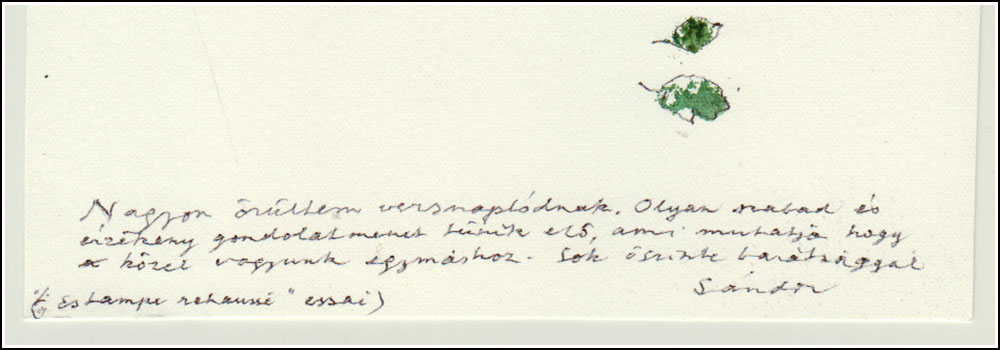 Nagyon örültem versnaplódnak. Olyan szabad és
érzékeny gondolatmenet tűnik elő, ami mutatja hogy
közel vagyunk egymáshoz. Sok őszinte barátsággal
Sándor
("Estampe rehaussé" essai)